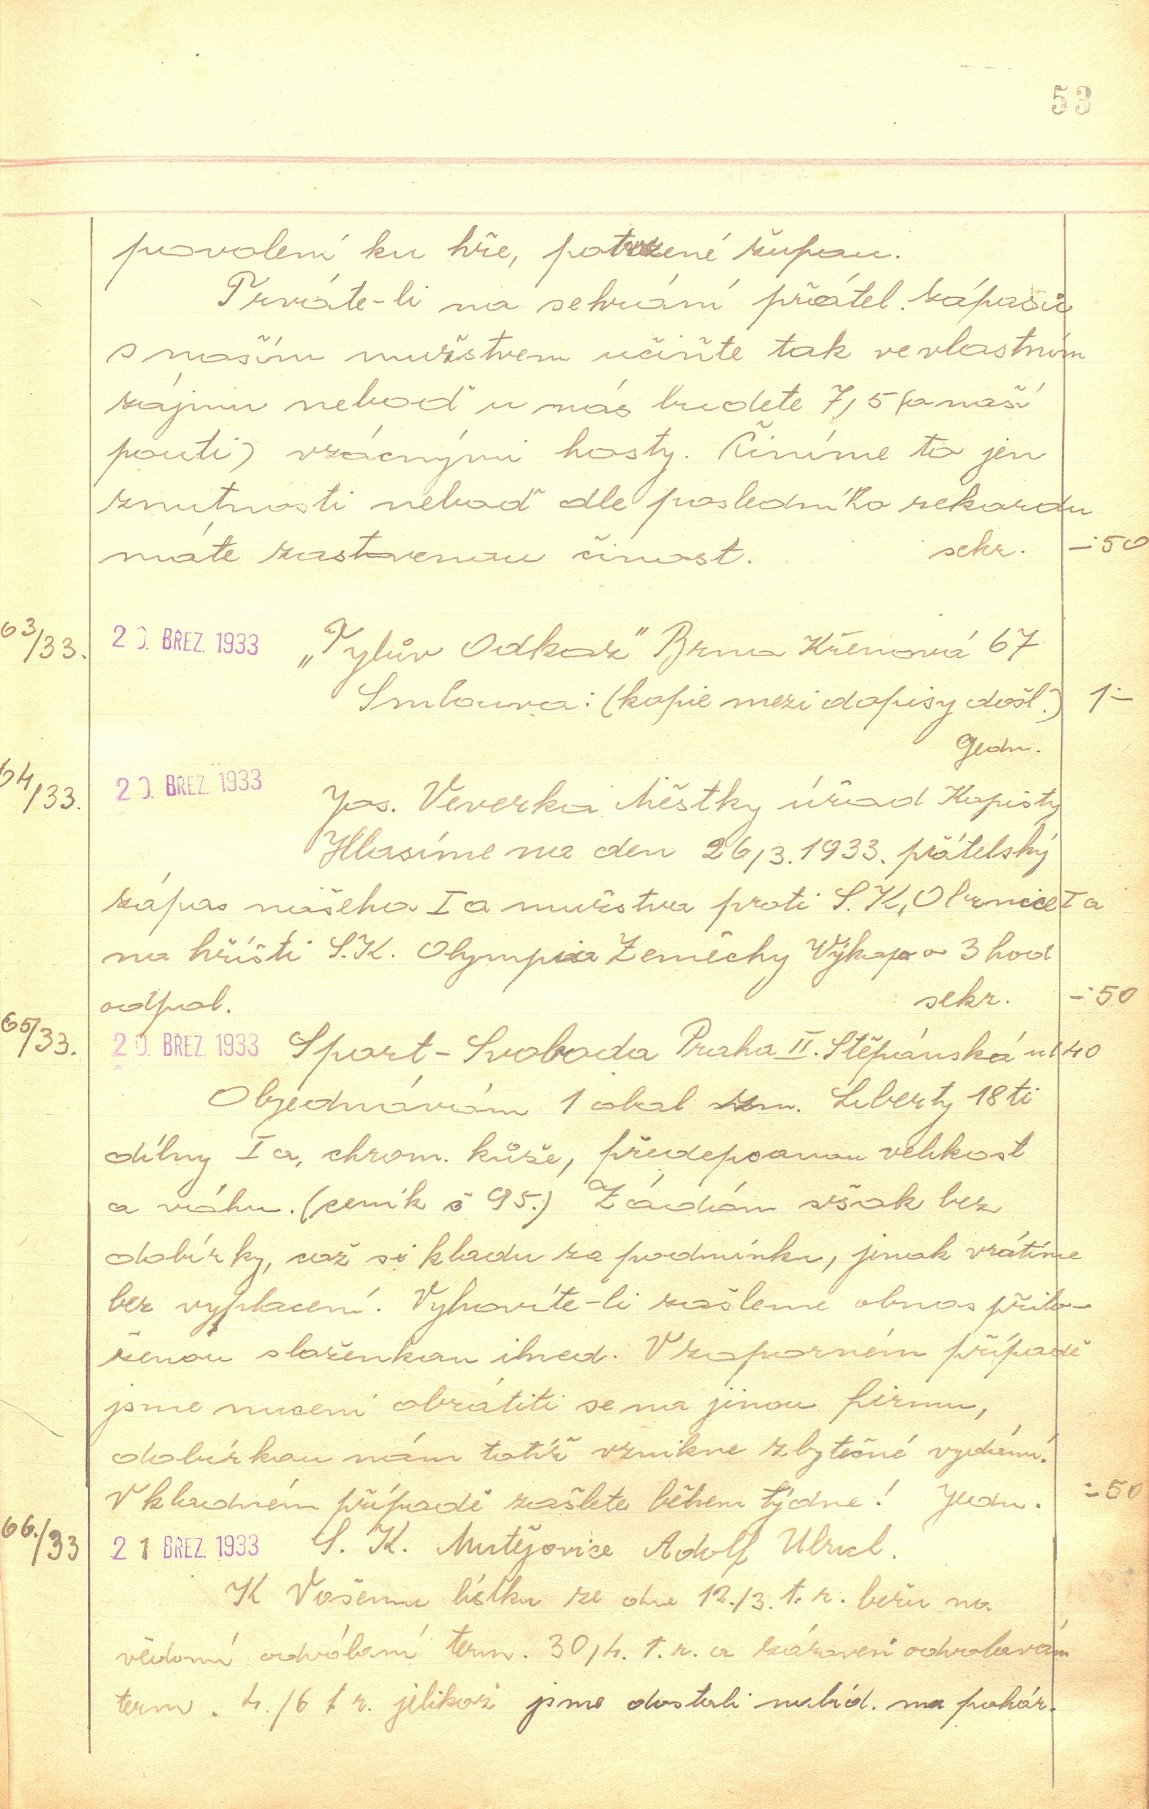 53
povolení ku hře, potvrzené župou.
Trváte-li na sehrání přátel. zápasů
s naším mužstvem učiňte tak ve vlastním
zájmu neboď u nás budete 7/5 (o naší
pouti) vzácnými hosty. Činíme to jen
z nutnosti neboď dle posledního rekordu
máte zastavenou činost. sekr. -:50
63/33. 20. BŘEZ. 1933 „Tylův Odkaz" Brno Křenová 67
Smlouva: (kopie mezi dopisy došl.) 1:-
Jedn.
64/33. 20. BŘEZ. 1933 Jos. Veverka Městky úřad Kopisty
Hlasíme na den 26/3. 1933. přátelský
zápas našeho I a mužstva proti S.K. Obrnice I a
na hřišti S.K. Olympia Zeměchy Výkop o 3 hod
odpol. sekr. -:50
65/33. 20. BŘEZ. 1933 Sport-Svoboda Praha II. Štěpánská ul 40
Objednávám 1 obal zn. Liberty 18ti
dílny I a, chrom. kůže, předepsanou velikost
a váhu. (ceník č 95.) Žádám však bez
dobírky, což si kladu za podmínku, jinak vrátíme
bez vyplacení. Vyhovíte-li zašleme obnos přilo-
ženou složenkou ihned. V zaporném případě
jsme nuceni obrátiti se na jinou firmu,
dobírkou nám totiž vznikne zbytečné vydání.
V kladném případě zašlete během týdne! Jedn. -:50
66./33 21 BŘEZ. 1933 S. K. Mutějovice Adolf Ulrich.
K Vašemu lístku ze dne 12./3. t. r. beru na
vědomí odvolání term. 30/4. t. r. a zároveň odvolavám
term. 4./6 t r. jelikož jsme dostali nabíd. na pohár.